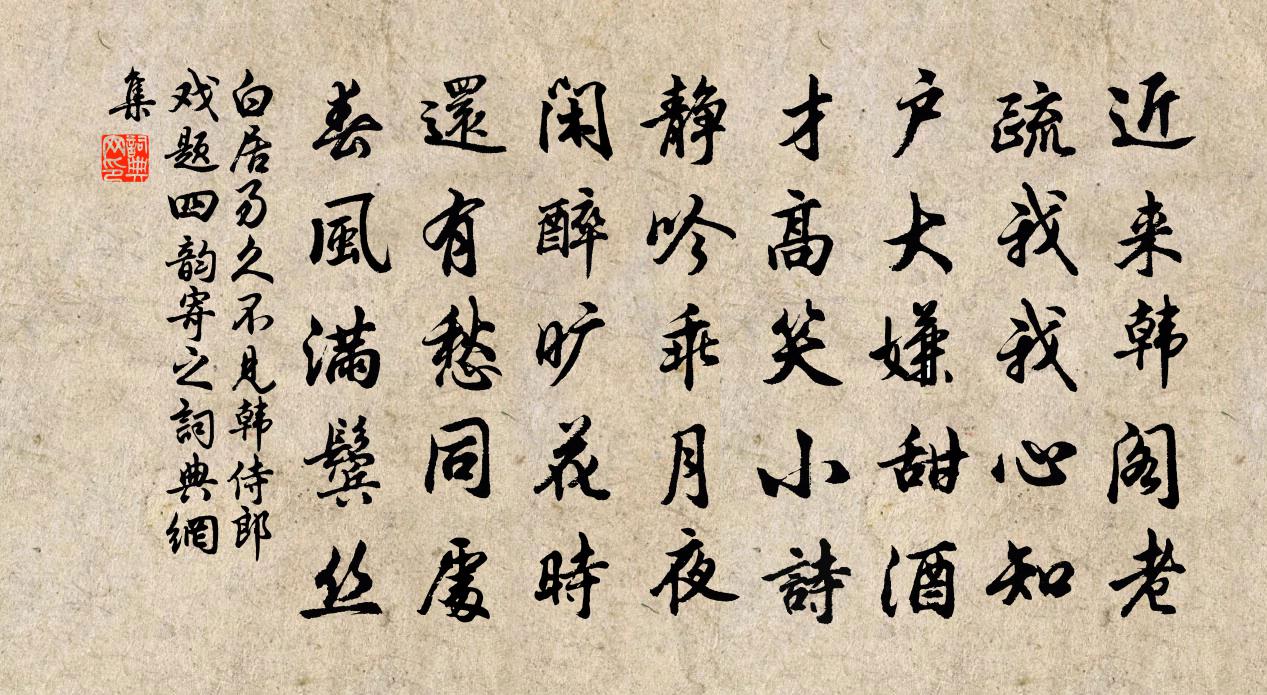 近来韩阁老
疏我我心知
户大嫌甜酒
才高笑小詩
静吟乖月夜
闲醉旷花時
還有愁同處
春風满鬓丝
白居易久不見韩侍郎
戏题四韵寄之詞典網
集
詞典网印